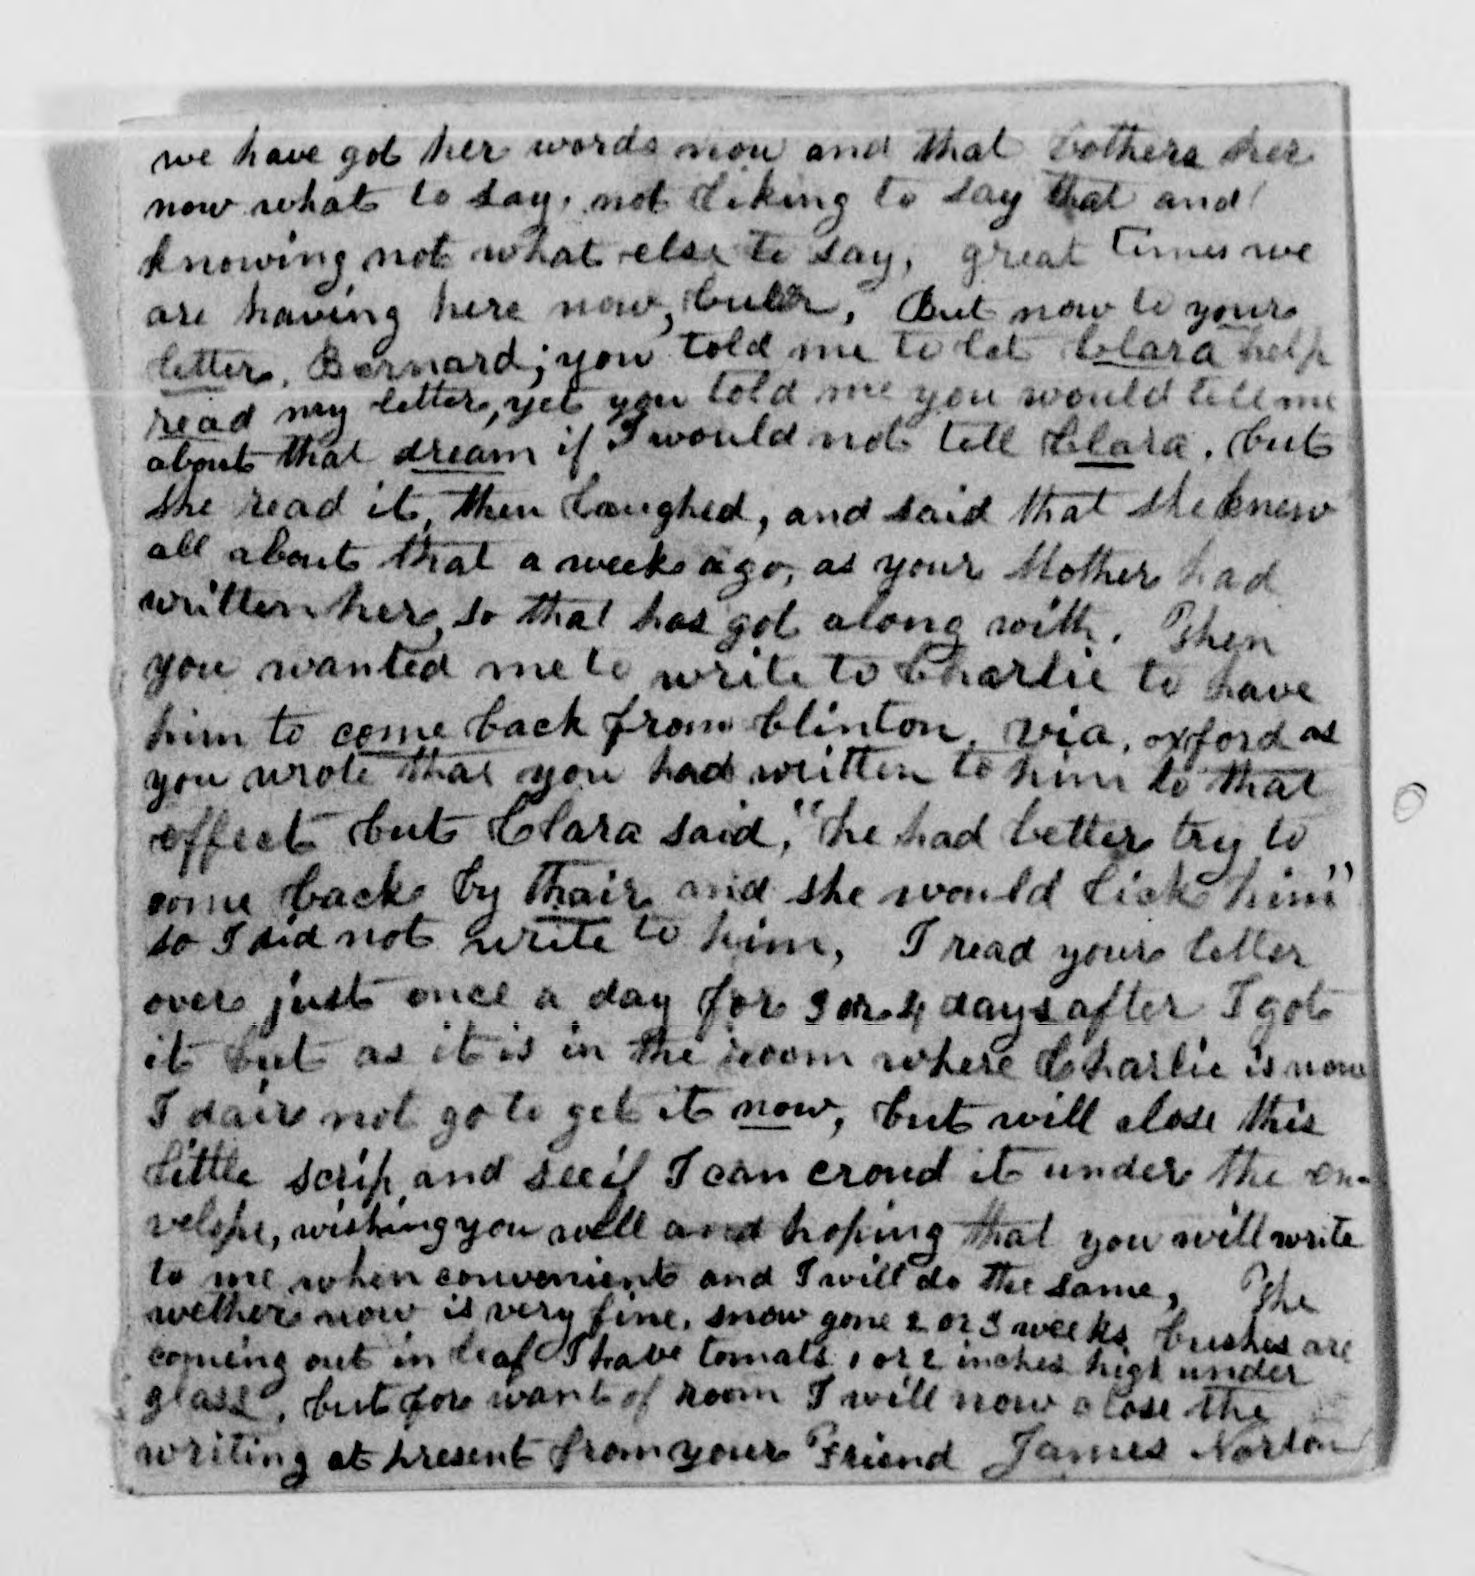 we have got her words now and that bothers her
now what to say, not liking to say that and
knowing not what else to say, great times we
are having here now, But now to your
letter, Bernard; you told me to let Clara help
read my letter, yet you told me you would tell me
about that dream if I would not tell Clara, but
she read it, then laughed, and said that she knew
all about that a week ago, as your Mother had
written her, so that has got along with. Then
you wanted me to write to Charlie to have
him to come back from Clinton, via, oxford as
you wrote that you had written to him to that
effect but Clara said, "he had better try to
come back by thair and she would lick him"
so I did not write to him, I read your letter
over just once a day for 3 or 4 days after I got
it but as it is in the room where Charlie is now
I dair not go to get it now, but will close this
little scrip, and see if I can croud it under the en-
velope, wishing you well and hoping that you will write
to me when convenient and I will do the same, The
wether now is very fine, snow gone 2 or 3 weeks, bushes are
coming out in leaf I have tomats 1 or 2 inches high under
glass, but for want of room I will now close the
writing at present from your Friend James Norton